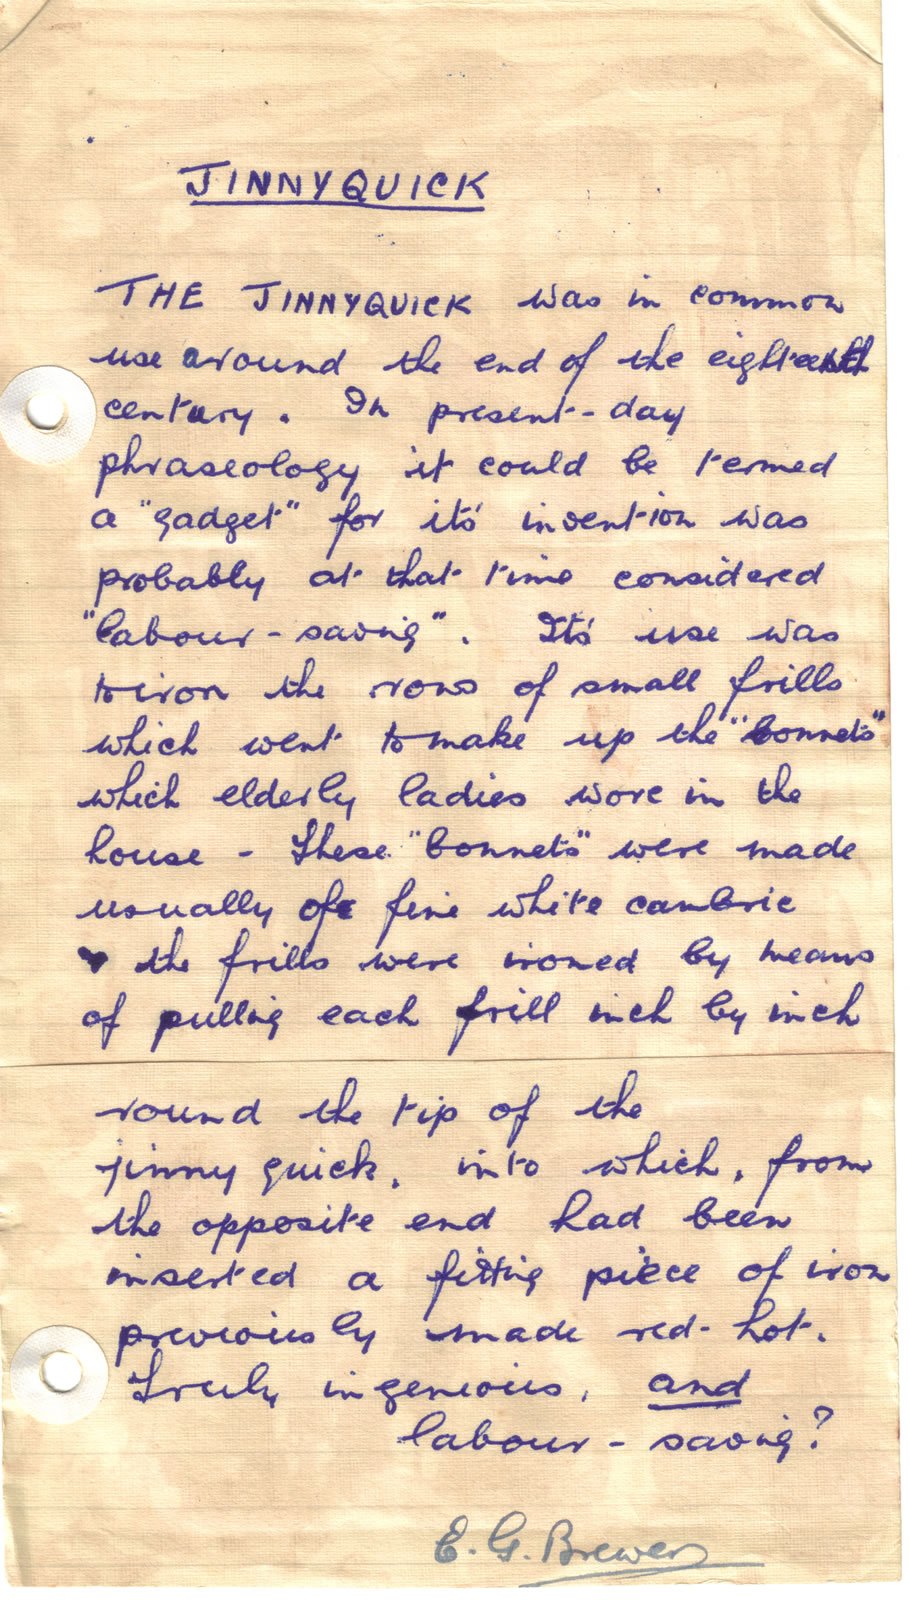 JINNYQUICK
THE JINNYQUICK was in common
use around the end of the eighteenth
century. In present-day
phraseology it could be termed
a "gadget" for its' invention was
probably at that time considered
"labour-saving". Its' use was
to iron the rows of small frills
which went to make up the "bonnets"
which elderly ladies wore in the
house - These "bonnets" were made
usually of fine white cambric
the frills were ironed by means
of pulling each frill inch by inch
round the tip of the
jinny quick, into which, from
the opposite end had been
inserted a fitting piece of iron
previously made red-hot.
Truly ingenious, and
labour-saving?
E. G. Brewer